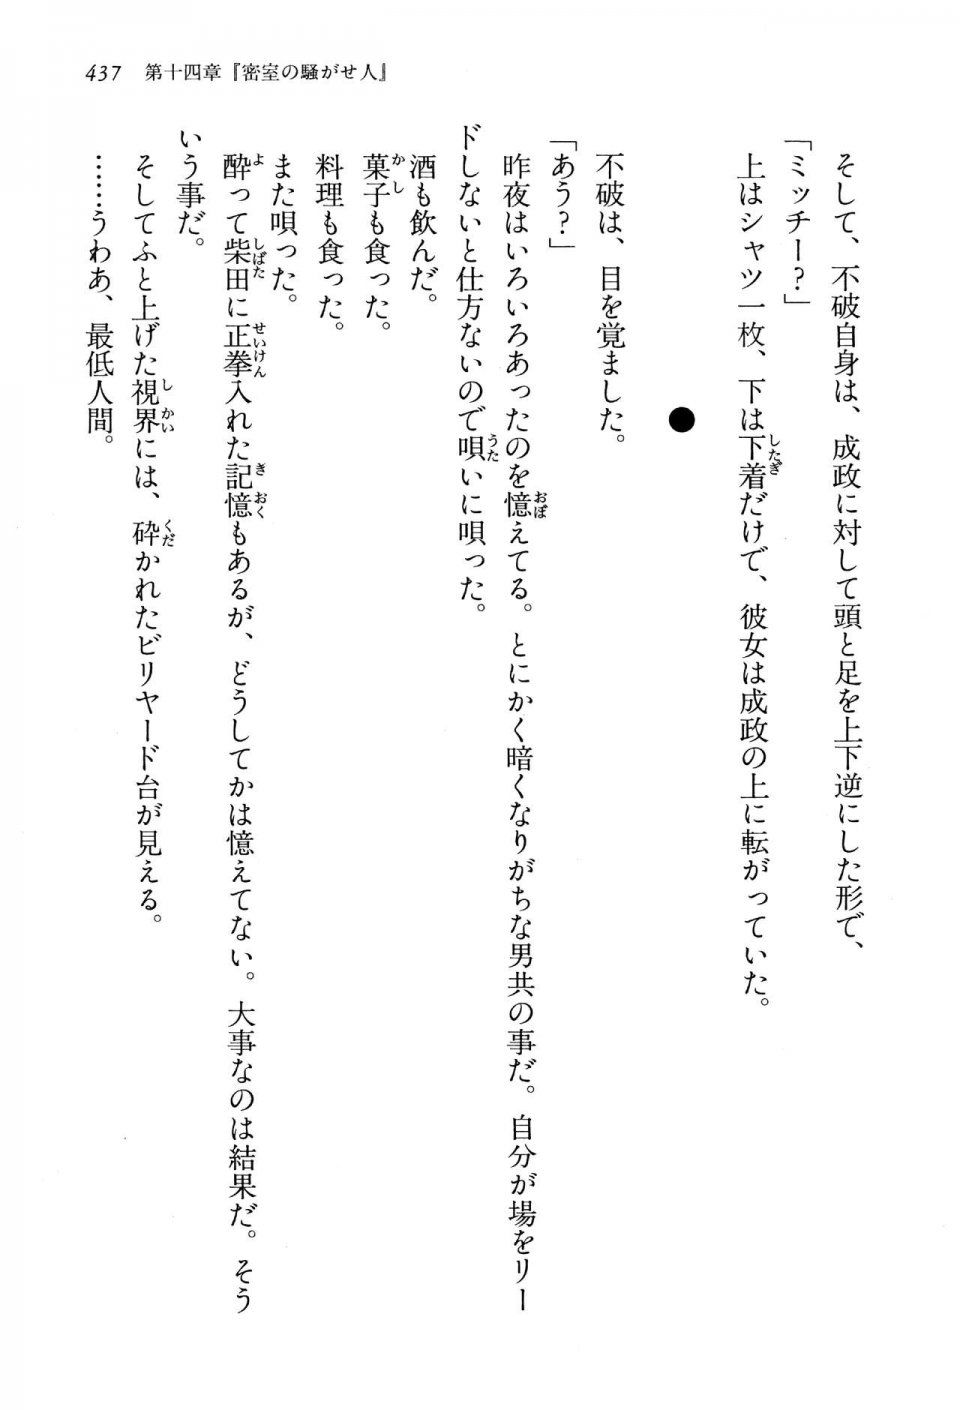 437　第十四章『密室の騒がせ人』
そして、不破自身は、成政に対して頭と足を上下逆にした形で、
「ミッチー？」
上はシャツ一枚、下は下着だけで、彼女は成政の上に転がっていた。
●
不破は、目を覚ました。
「あう？」
昨夜はいろいろあったのを憶えてる。とにかく暗くなりがちな男共の事だ。自分が場をリー
ドしないと仕方ないので唄いに唄った。
酒も飲んだ。
菓子も食った。
料理も食った。
また唄った。
酔って柴田に正拳入れた記憶もあるが、どうしてかは憶えてない。大事なのは結果だ。そう
いう事だ。
そしてふと上げた視界には、砕かれたビリヤード台が見える。
……うわあ、最低人間。